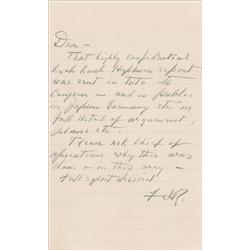 Dan –
That highly confidential
hush hush Hepburn report
was sent in toto to
Congress – and is public
in Japan Germany etc in
full detail of
plans etc.
Please ask chief of
operations why this was
done in this way –
Full report desired
FDR.